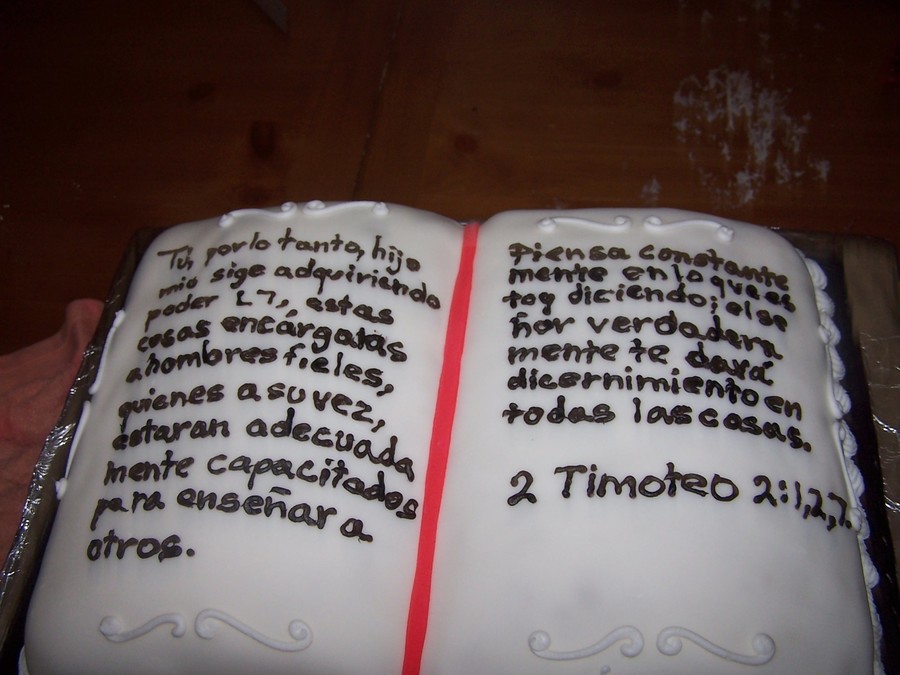 Tú, por lo tanto, hijo
mio sige adquiriendo
poder [,], estas
cosas encárgalas
a hombres fieles,
quienes a su vez,
estaran adecuada
mente capacitados
para enseñar a
otros.
Piensa constante
mente en lo que es
toy diciendo; el se
ñor verdadera
mente te dará
dicernimiento en
todas las cosas.
2 Timoteo 2:1,2,7.